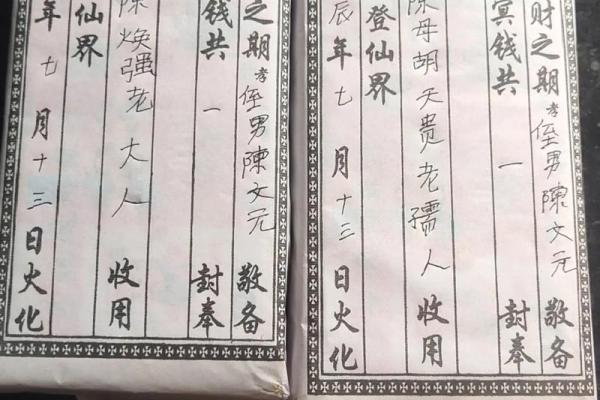 财之期孝侄男陳文元敬备
冥钱共一封奉
陳母胡天贵老孺人收用
登仙界
辰年七月十三日火化
之期孝侄男陳文元敬备
钱共一封奉
陳焕强老大人收用
仙界
年七月十三日火化